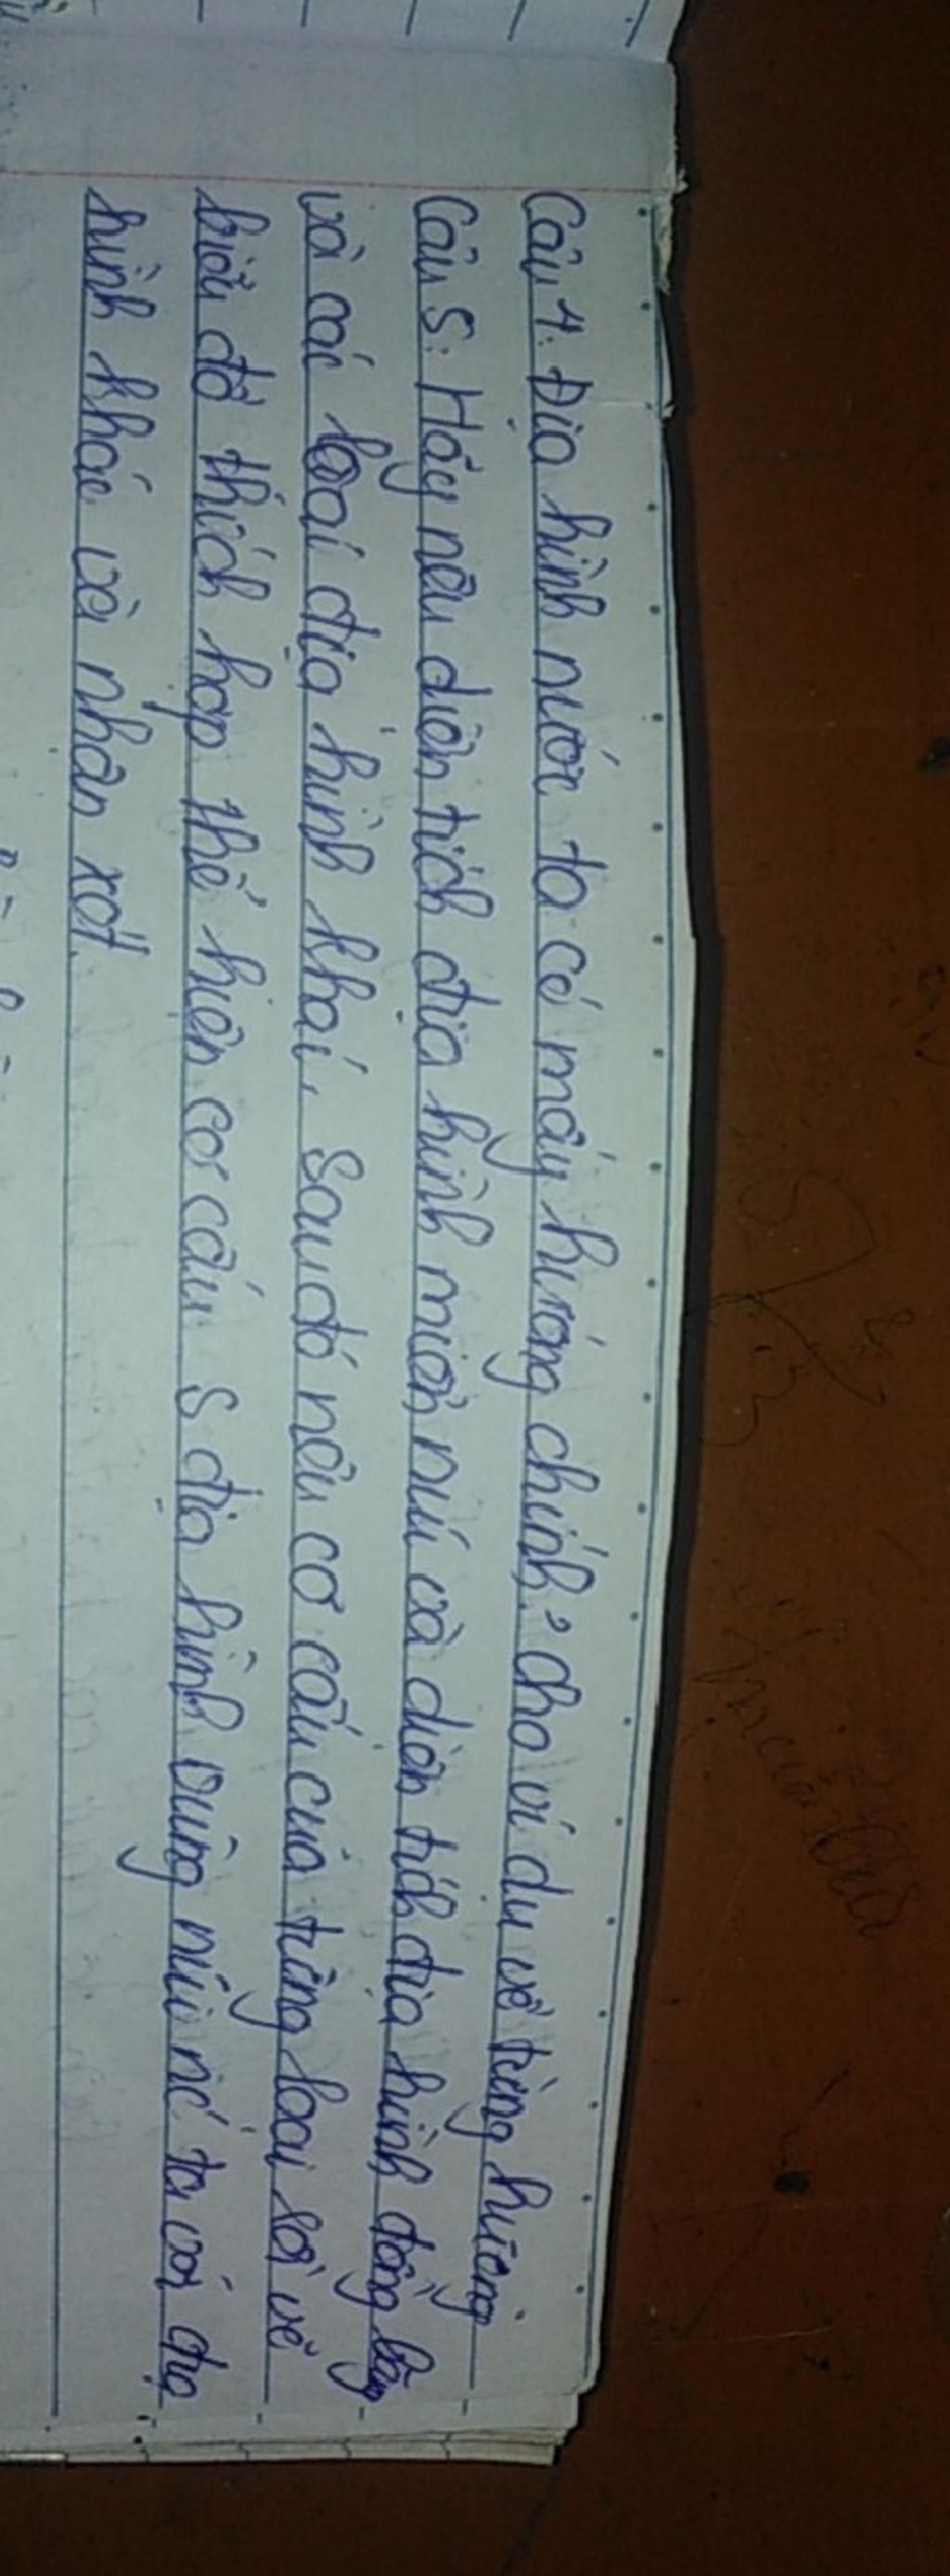 Câu 4: Địa hình nước ta có mấy hướng chính? cho ví dụ về từng hướng
Câu 5: Hãy nêu diện tích địa hình miền núi và diện tích địa hình đồng bằng
và các loại địa hình khác. Sau đó nêu cơ cấu của từng loại rồi vẽ
biểu đồ thích hợp thể hiện cơ cấu S địa hình vùng núi nc ta với địa
hình khác và nhận xét.